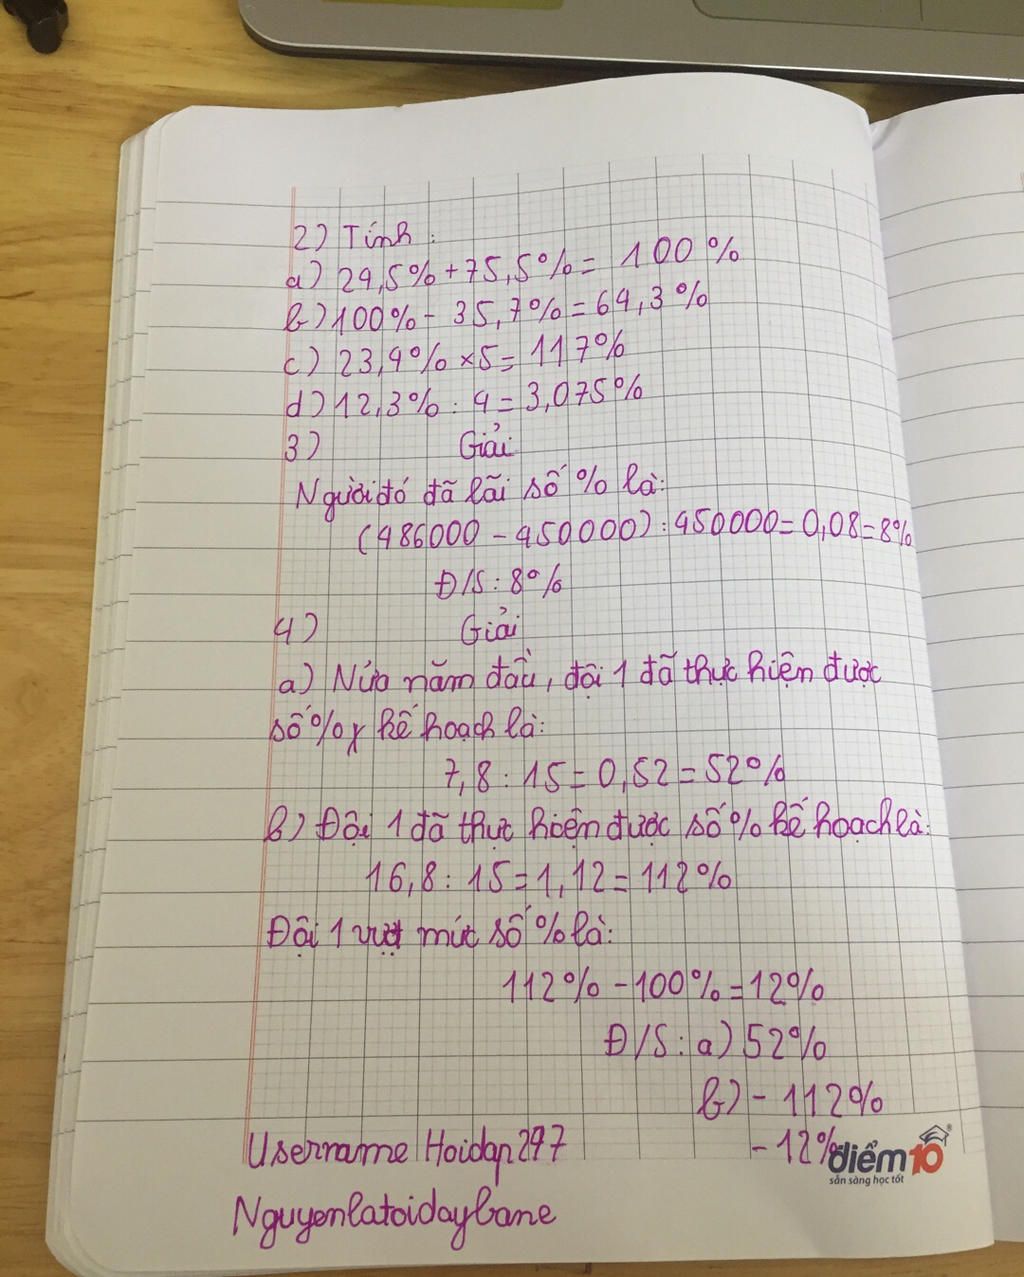 2) Tính:
a) 24,5% + 75,5% = 100%
b) 100% - 35,7% = 64,3%
c) 23,4% x 5 = 117%
d) 12,3% : 4 = 3,075%
3) Giải
Người đó đã lãi số % là:
(486000 - 450000) : 450000 = 0,08 = 8%
Đ/S : 8%
4) Giải
a) Nửa năm đầu, đội 1 đã thực hiện được
số % kế hoạch là:
7,8 : 15 = 0,52 = 52%
b) Đội 1 đã thực hiện được số % kế hoạch là:
16,8 : 15 = 1,12 = 112%
Đội 1 vượt mức số % là:
112% - 100% = 12%
Đ/S : a) 52%
b) - 112%
- 12%
điểm10
sẵn sàng học tốt
Username Hoidap247
Nguyenlatoidaybane